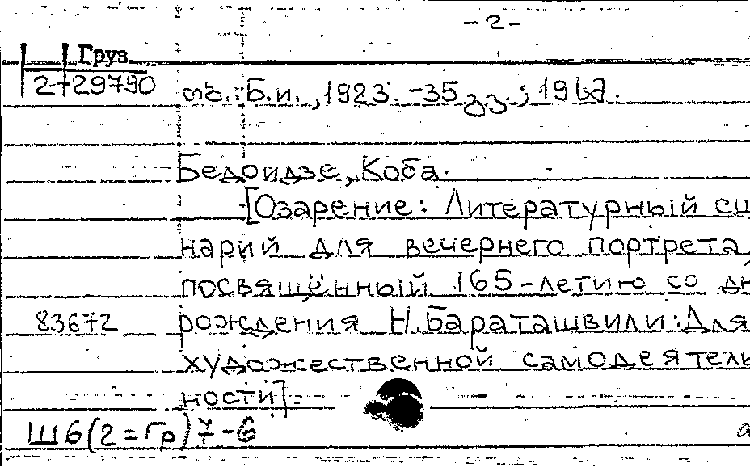 -2-
Груз
2-29790
Б.и., 1983. -35 ; 19
Бедоидзе, Коба.
[Озарение: Литературный сце
нарий для вечернего портрета,
посвящённый 165-летию со дн
83672 рождения Н.Бараташвили: Для
художественной самодеятель
ности].
Ш6(2=Гр)7-6